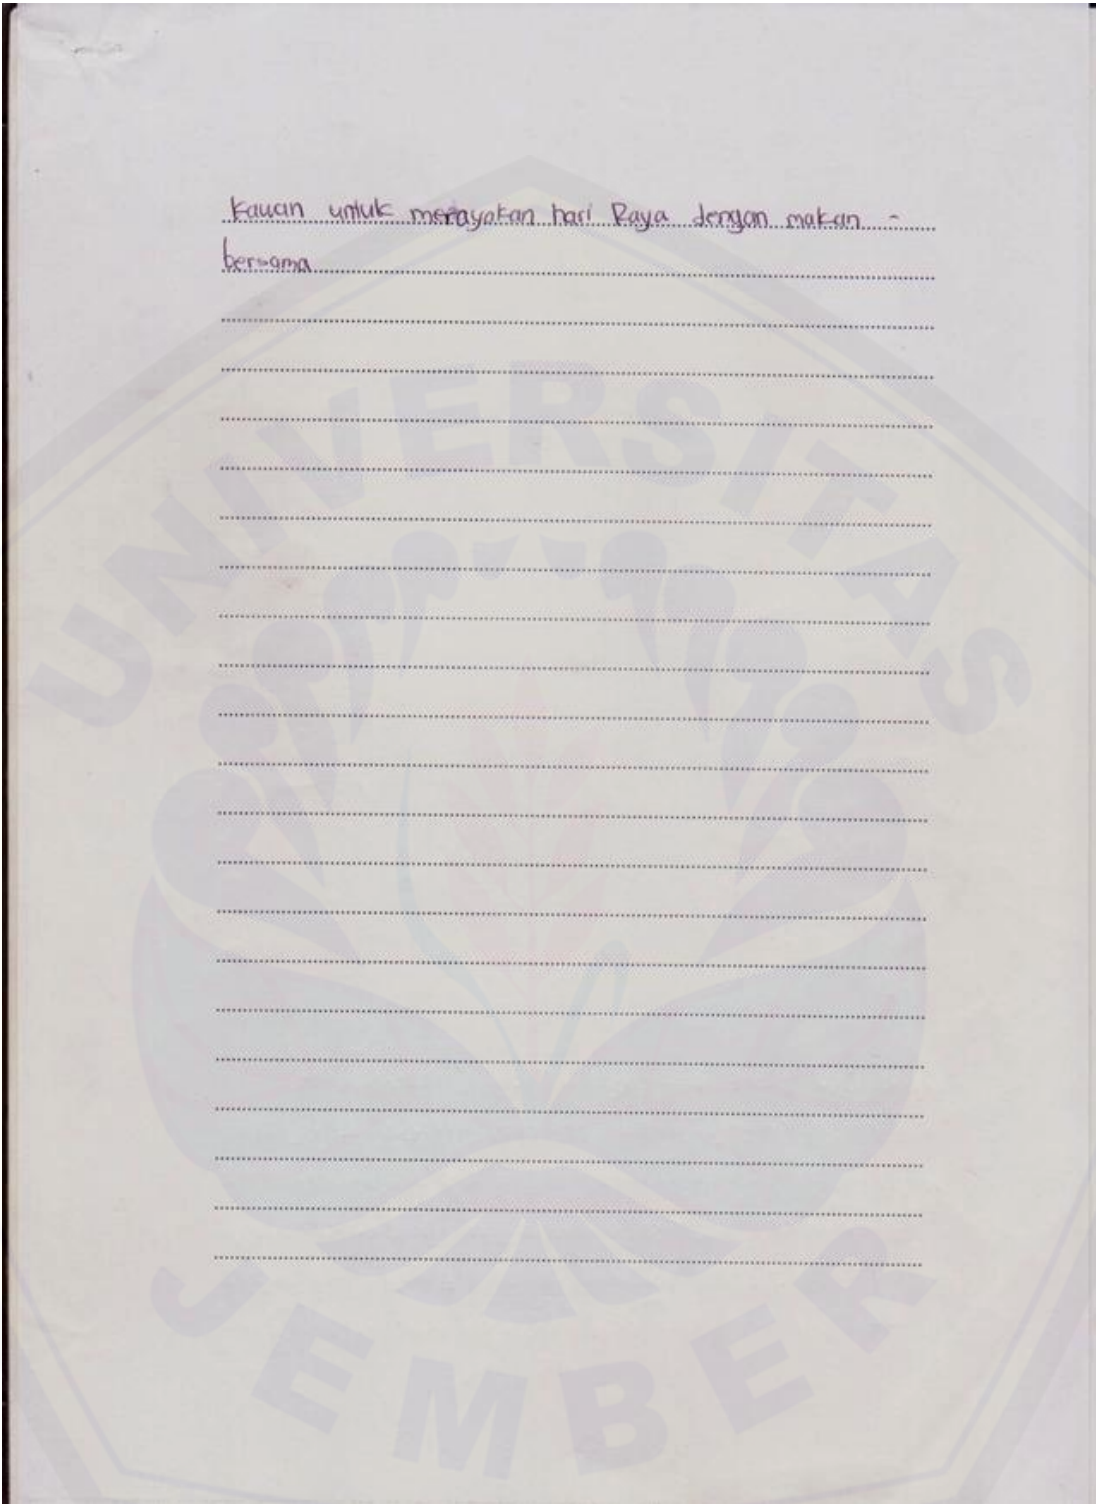 kawan untuk merayakan hari Raya dengan makan -
bersama
UNIVERSITAS
JEMBER